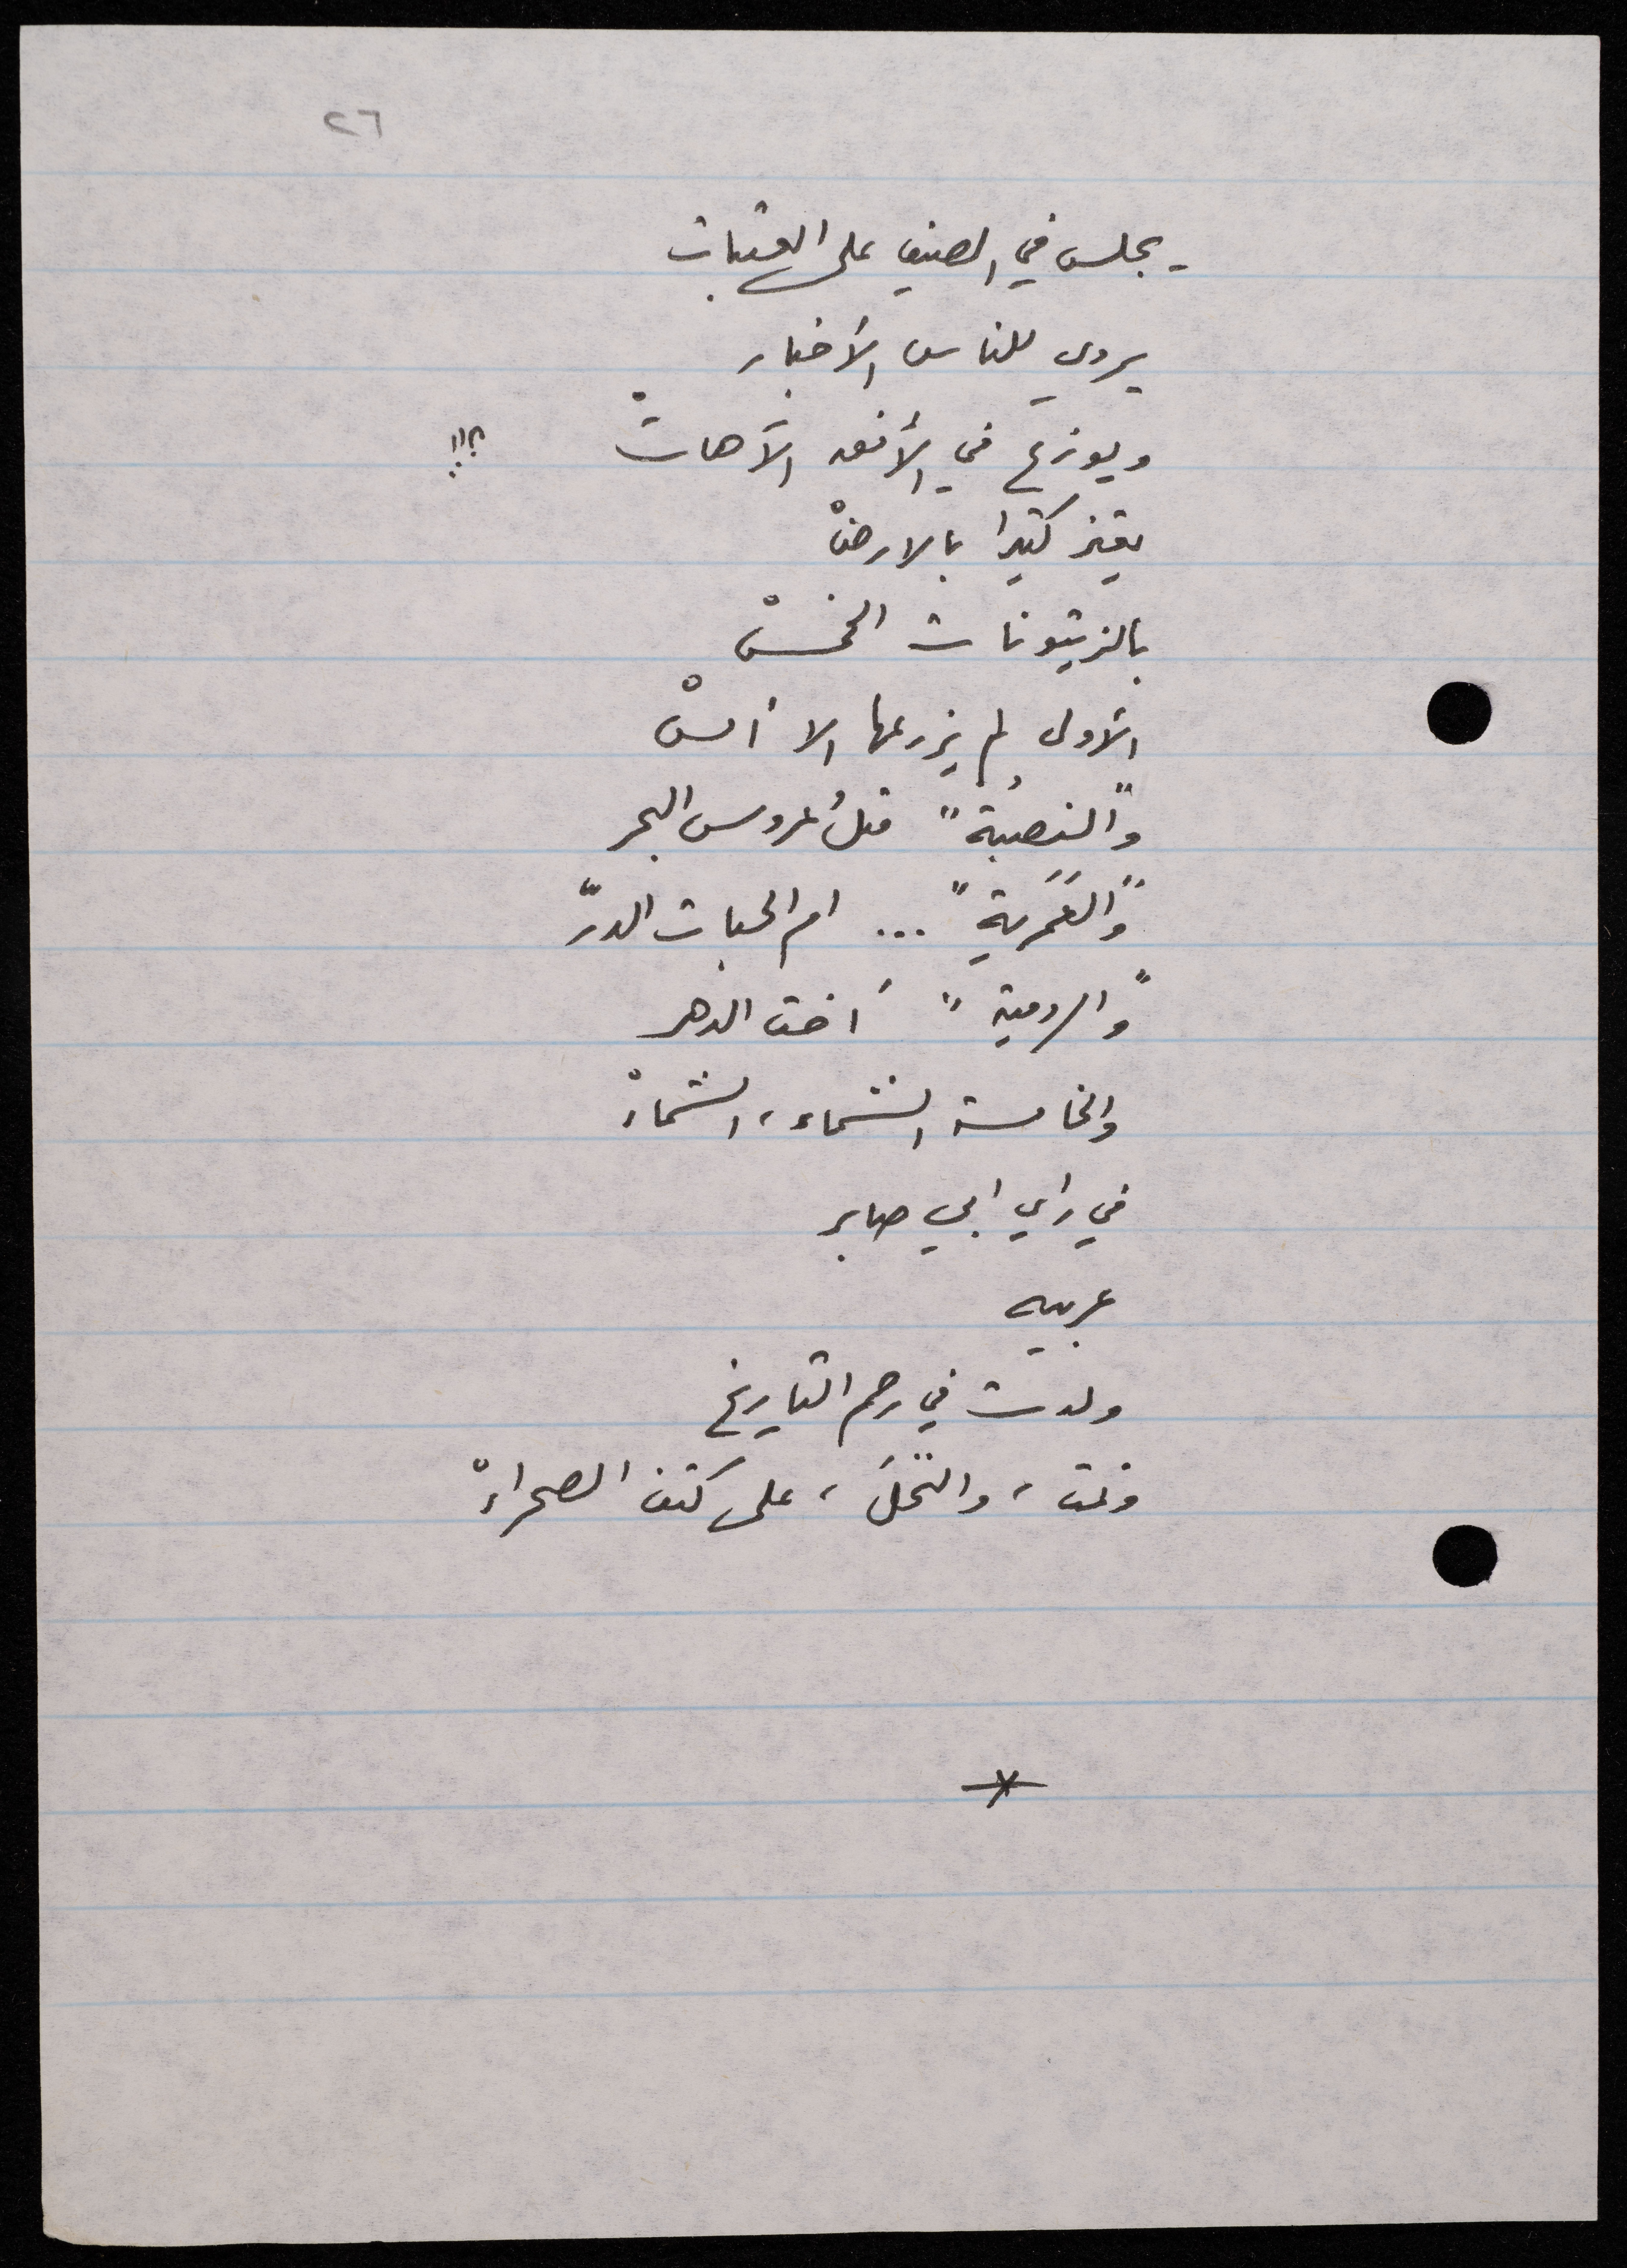 ٢٦
يجلس في الصيف على العتبات
يروي للناس الأخبار
ويوزع في الأفق الآهاتْ ؟!!
يعتز كثيرا بالارضْ
بالزيتونات الخمسْ
الأولى لم يزرعها الا أمسْ
و"النصبُة" مثلُ عروس البحر
و"العَمَرية" ... ام الحبات الدرّ
و"الرومية" أخت الدهر
والخامسة الشماء، الشماءْ
في راي ابي صابر
عربيه
ولدت في رحم التاريخ
ونمت، والنّخلَ، على كتف الصحراءْ